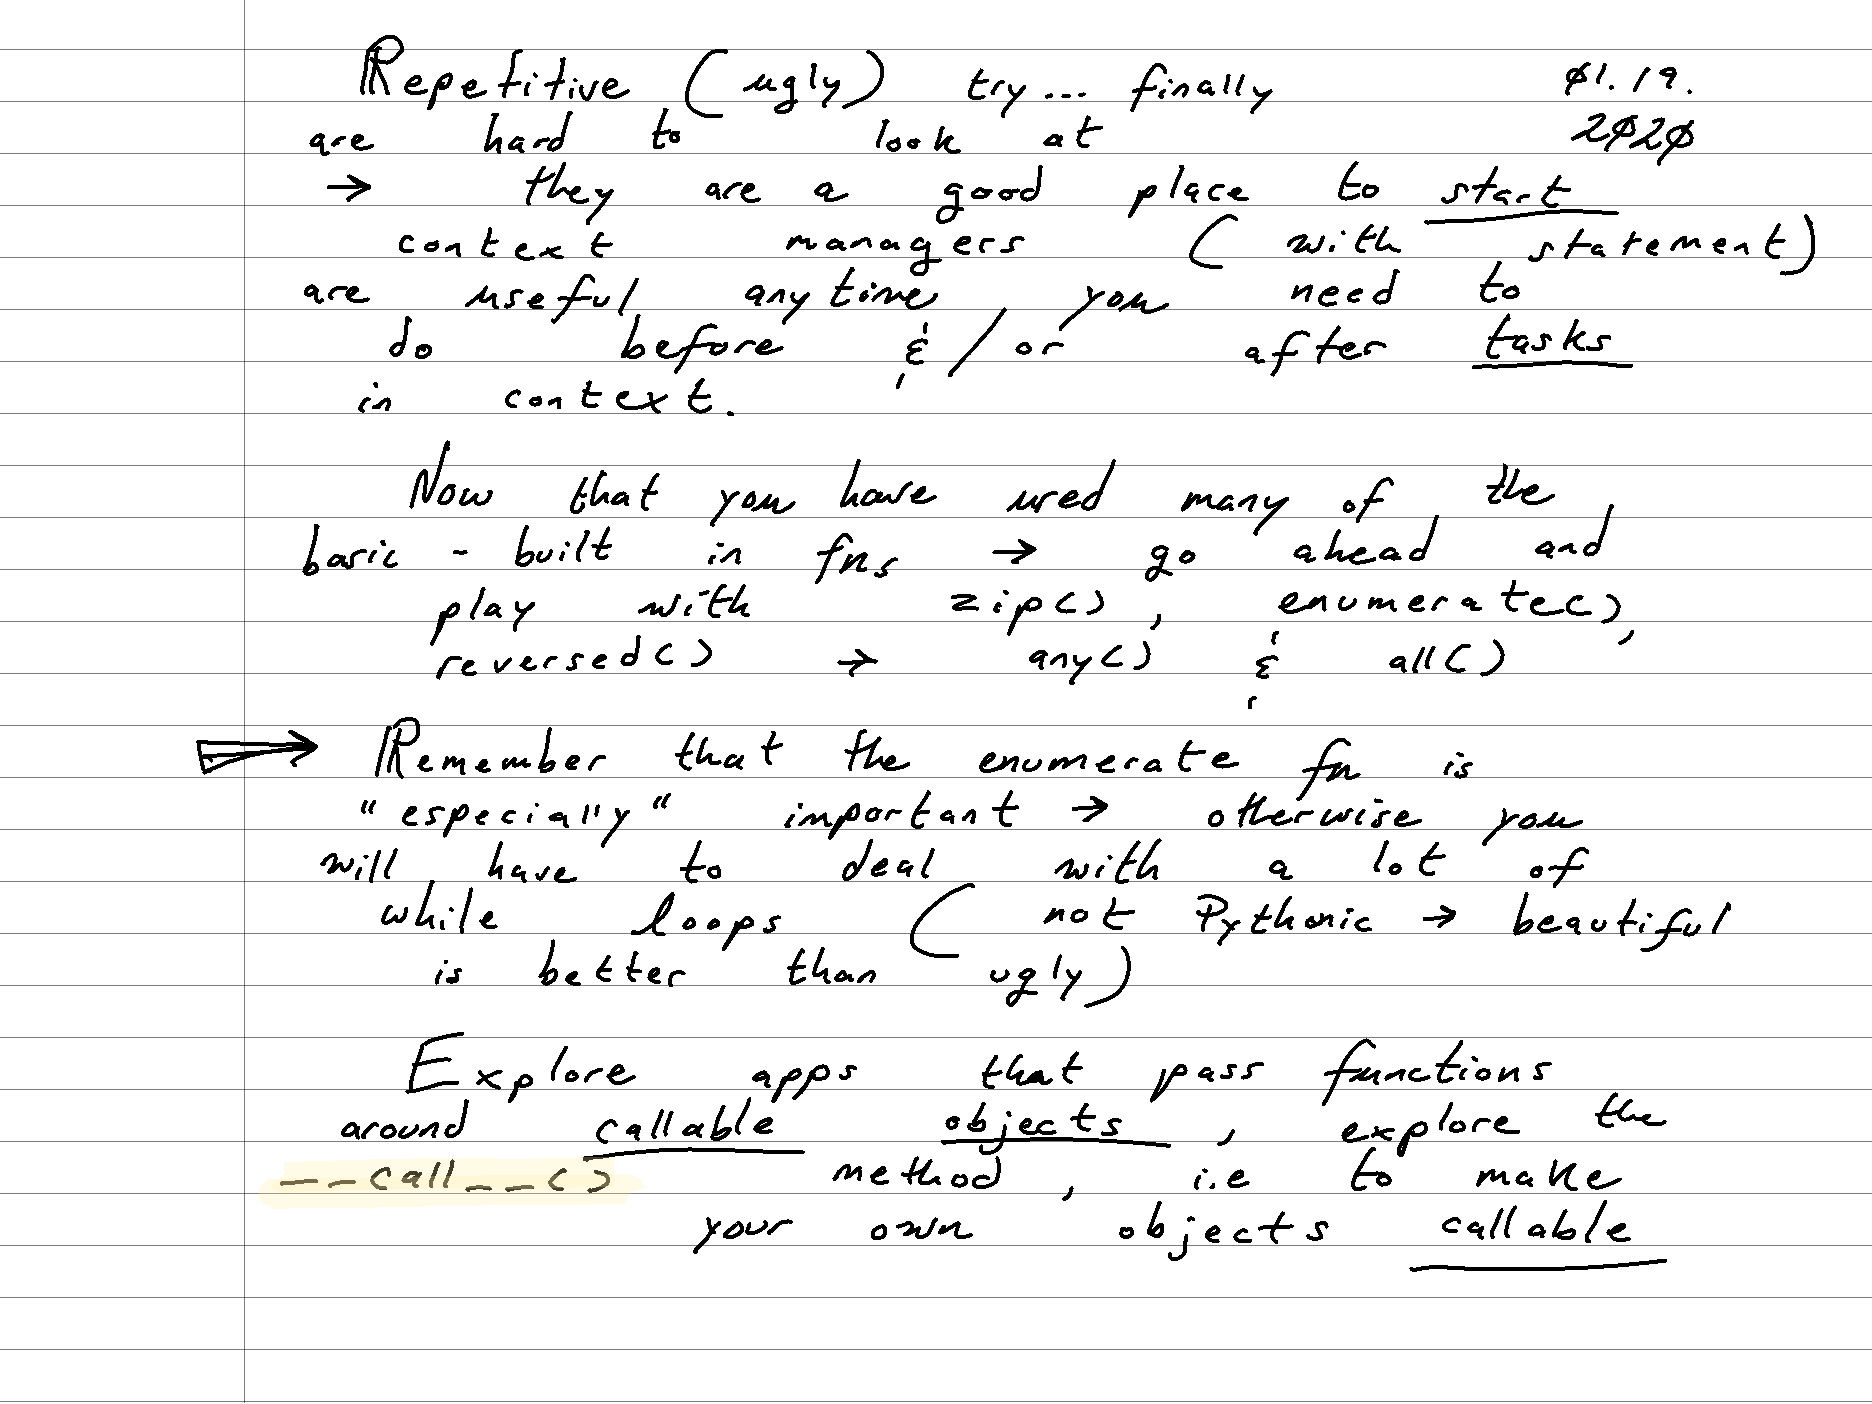 Repetitive (ugly) try... finally 01.19.
are hard to look at 2020
→ they are a good place to start
context managers (with statement)
are useful anytime you need to
do before & / or after tasks
in context.
Now that you have used many of the
basic - built in fns → go ahead and
play with zip(), enumerate(),
reversed() → any() & all()
Remember that the enumerate fn is
"especially" important → otherwise you
will have to deal with a lot of
while loops (not Pythonic → beautiful
is better than ugly)
Explore apps that pass functions
around callable objects, explore the
__call__() method, i.e to make
your own objects callable